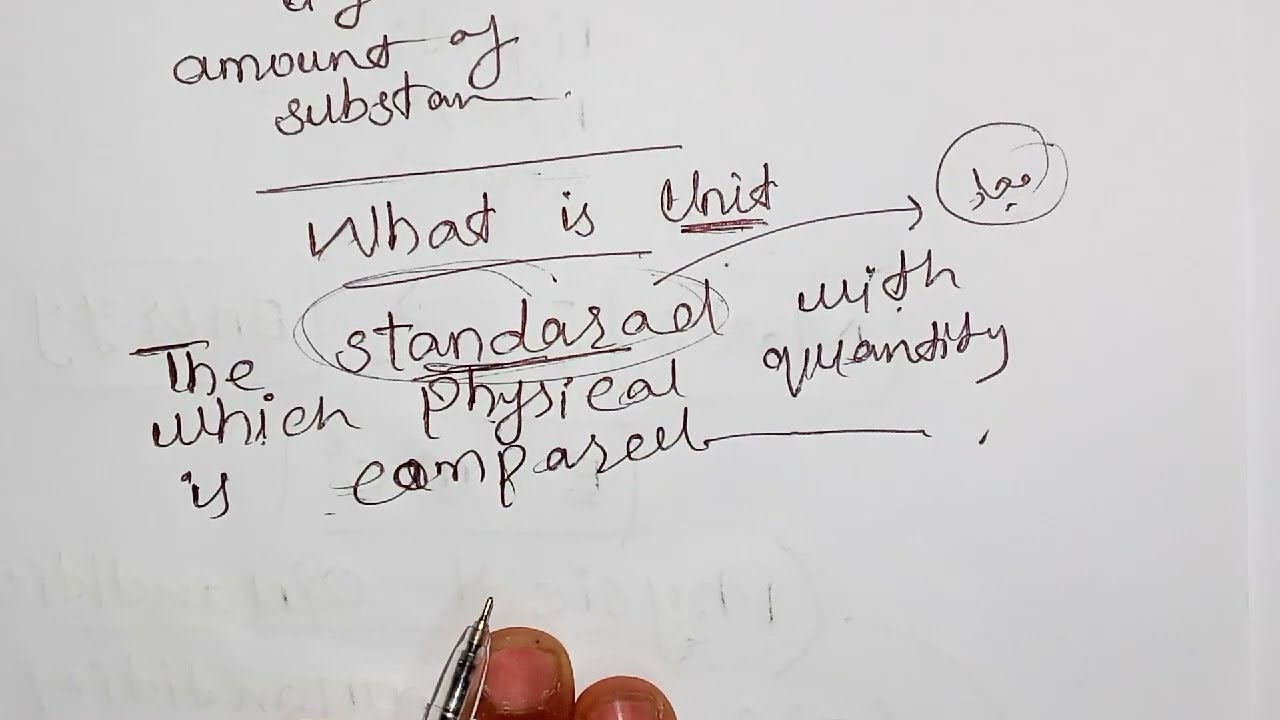 amount of
substan
What is Unit
معیار
The standarad with
which physical quantity
is compared.